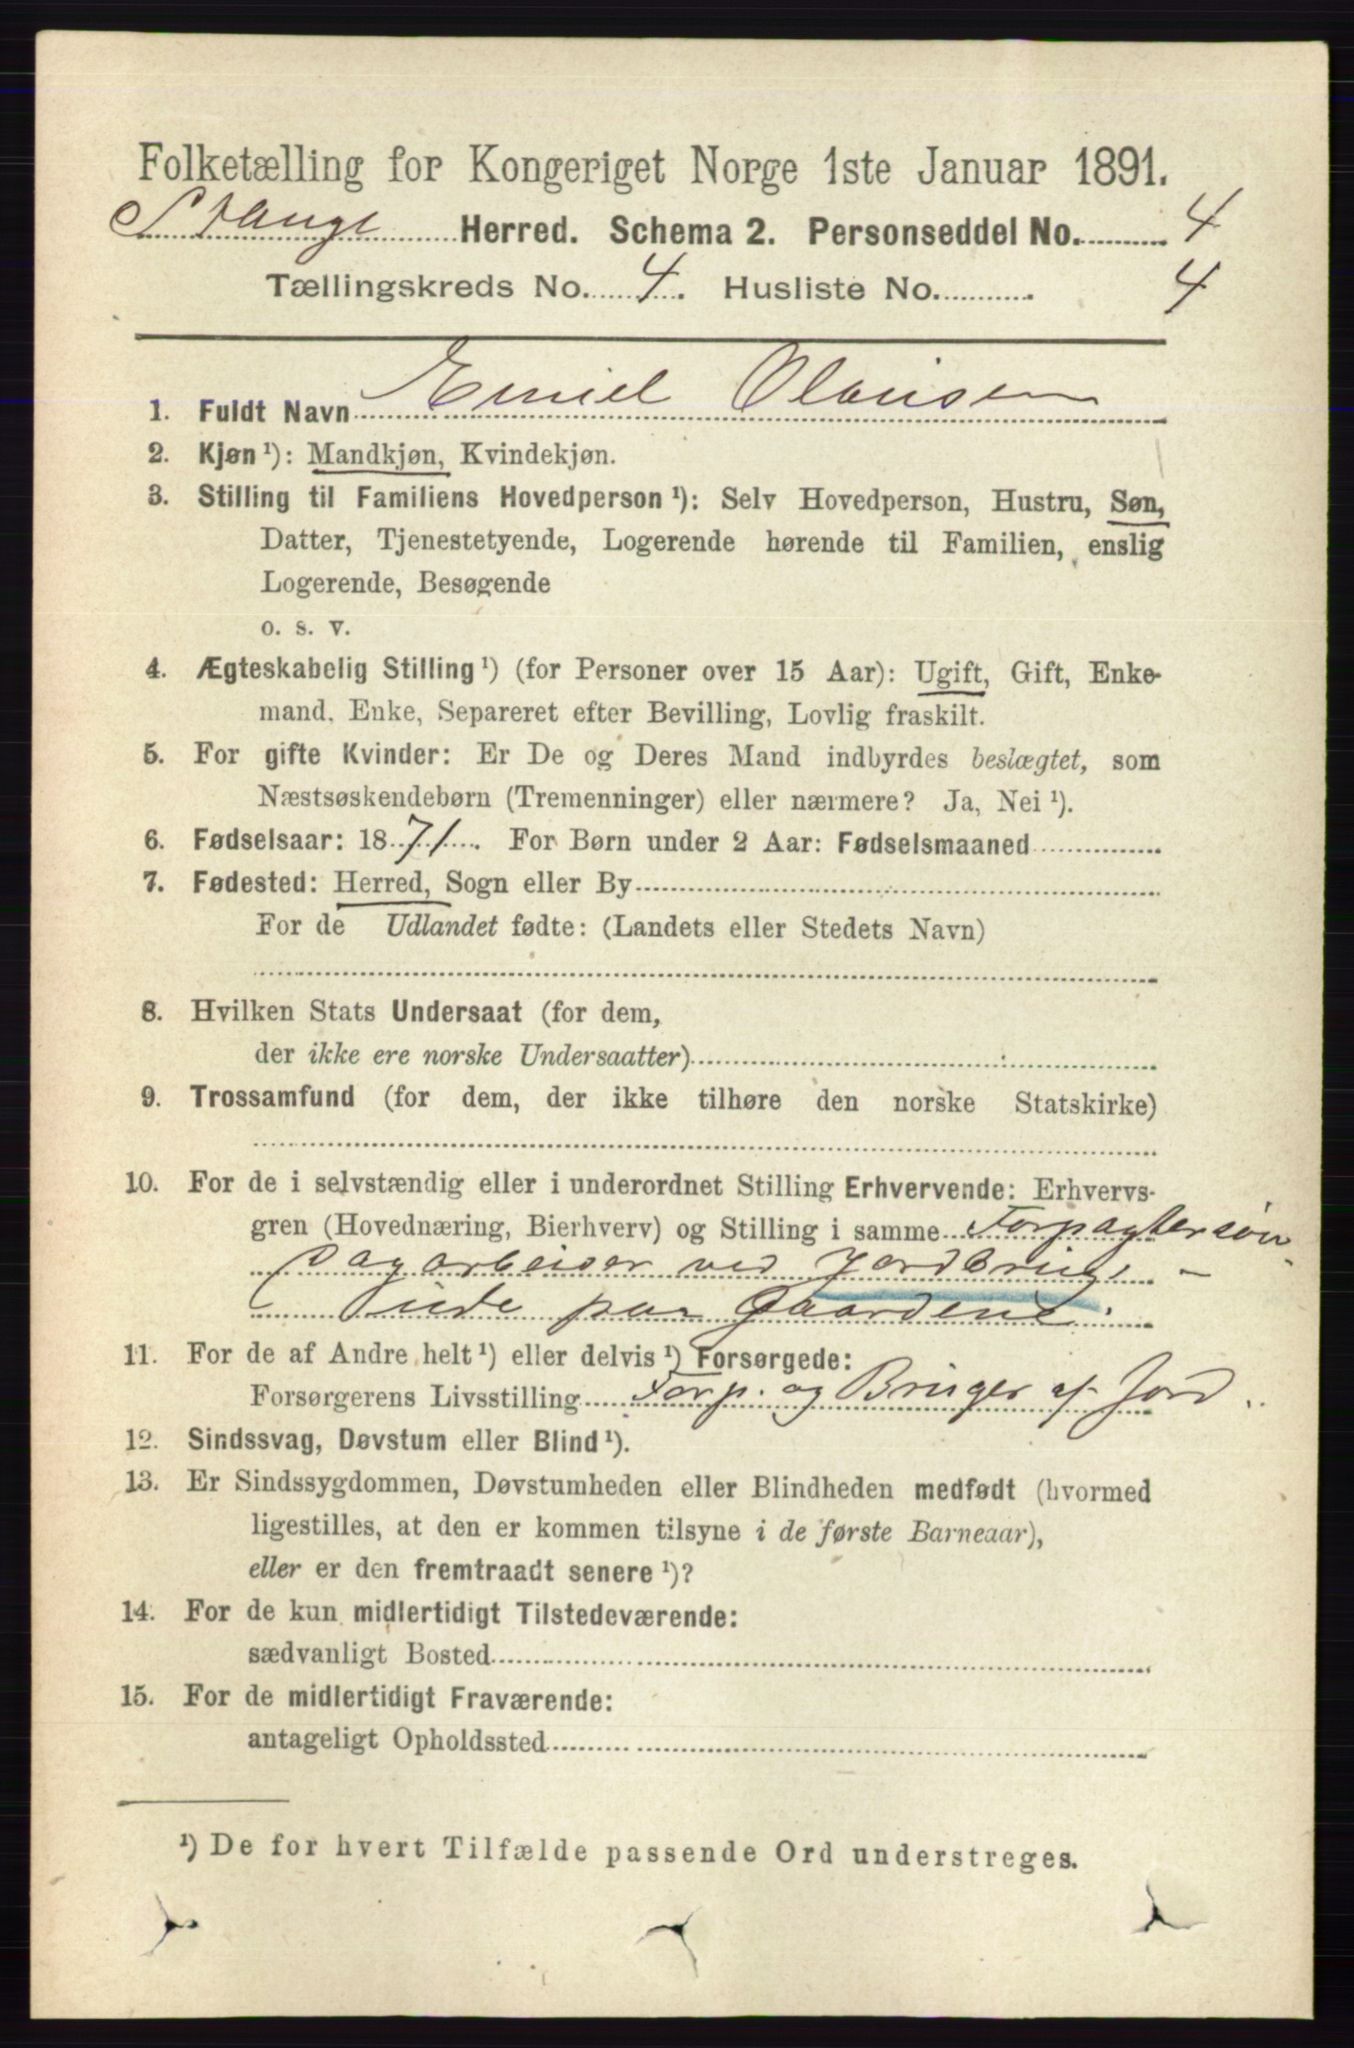 Folketælling for Kongeriget Norge 1ste Januar 1891.
Stange Herred. Schema 2. Personseddel No. 4
Tællingskreds No. 4. Husliste No. 4
1. Fuldt Navn Emiel Olausen
2. Kjøn ¹): Mandkjøn, Kvindekjøn.
3. Stilling til Familiens Hovedperson ¹): Selv Hovedperson, Hustru, Søn,
Datter, Tjenestetyende, Logerende hørende til Familien, enslig
Logerende, Besøgende
o. s. v.
4. Ægteskabelig Stilling ¹) (for Personer over 15 Aar): Ugift, Gift, Enke-
mand, Enke, Separeret efter Bevilling, Lovlig fraskilt.
5. For gifte Kvinder: Er De og Deres Mand indbyrdes beslægtet, som
Næstsøskendebørn (Tremenninger) eller nærmere? Ja, Nei ¹).
6. Fødselsaar: 1871. For Børn under 2 Aar: Fødselsmaaned
7. Fødested: Herred, Sogn eller By
For de Udlandet fødte: (Landets eller Stedets Navn)
8. Hvilken Stats Undersaat (for dem,
der ikke ere norske Undersaatter)
9. Trossamfund (for dem, der ikke tilhøre den norske Statskirke)
10. For de i selvstændig eller i underordnet Stilling Erhvervende: Erhvervs-
gren (Hovednæring, Bierhverv) og Stilling i samme Forpagtersøn
Dagarbeider ved Jordbrug -
ude paa Gaardene.
11. For de af Andre helt ¹) eller delvis ¹) Forsørgede:
Forsørgerens Livsstilling Forp. og Bruger af Jord.
12. Sindssvag, Døvstum eller Blind ¹).
13. Er Sindssygdommen, Døvstumheden eller Blindheden medfødt (hvormed
ligestilles, at den er kommen tilsyne i de første Barneaar),
eller er den fremtraadt senere ¹)?
14. For de kun midlertidigt Tilstedeværende:
sædvanligt Bosted
15. For de midlertidigt Fraværende:
antageligt Opholdssted
¹) De for hvert Tilfælde passende Ord understreges.